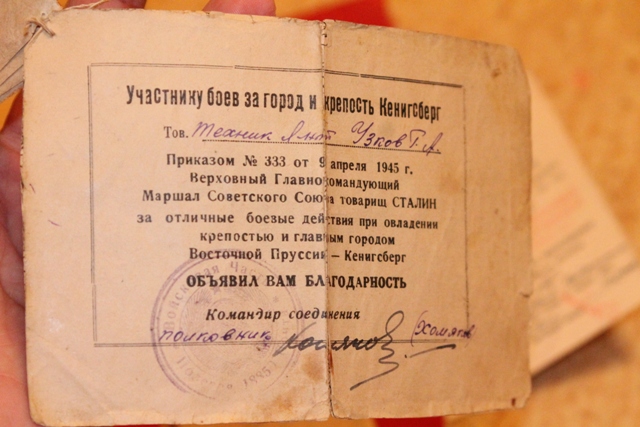 Участнику боев за город и крепость Кенигсберг
Тов. техник л-нт Узков Г. А.
Приказом № 333 от 9 апреля 1945 г.
Верховный Главнокомандующий
Маршал Советского Союза товарищ СТАЛИН
за отличные боевые действия при овладении
крепостью и главным городом
Восточной Пруссии — Кенигсберг
ОБЪЯВИЛ ВАМ БЛАГОДАРНОСТЬ
Командир соединения
полковник Хомяков (Хомяков)